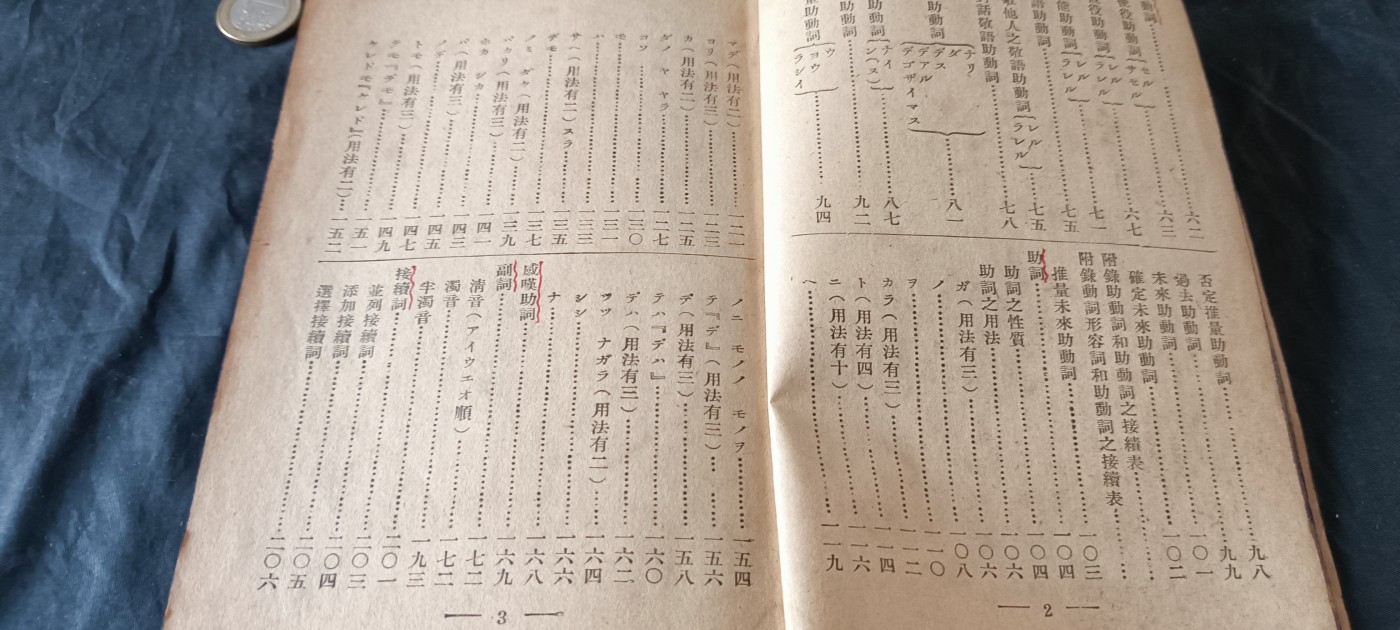 助動詞
使役助動詞(セル サセル)……六七
レル
ラレル
……七一
能助動詞(レル ラレル)……七五
語助動詞……七五
敬他人之敬語助動詞(レル ラレル)……七八
對話敬語助動詞
助動詞(ナリ ダ デス デアル デゴザイマス)……八一
助動詞(ナイ ン(ヌ))……八七
助動詞……九二
助動詞(ウ ヨウ ラシイ)……九四
否定推量助動詞……九八
過去助動詞……一〇一
未來助動詞……一〇二
確定未來助動詞
附錄助動詞和助動詞之接續表
附錄動詞形容詞和助動詞之接續表……一〇三
推量未來助動詞……一〇四
助詞……一〇四
助詞之性質……一〇六
助詞之用法……一〇六
ガ(用法有三)……一〇八
ノ……一一〇
ヲ……一一二
カラ(用法有三)……一一四
ト(用法有四)……一一六
ニ(用法有十)……一一九
ヘ
2
マデ(用法有二)……一二一
ヨリ(用法有三)……一二三
カ(用法有二)……一二五
ダノ ヤ ヤラ……一二七
コソ……一三〇
モ……一三一
ハ……一三三
サヘ(用法有二)スラ……一三五
デモ……一三七
ノミ ダケ(用法有二)
バカリ(用法有三)……一三九
ホカ シカ……一四一
バ(用法有三)……一四三
ノデ……一四五
トモ(用法有三)……一四七
テモ『デモ』……一四九
ケレドモ『ケレド』(用法有二)……一五二
ノニ モノノ モノヲ……一五四
テ『デ』(用法有三)……一五六
デ(用法有三)……一五八
テハ『デハ』……一六〇
デハ(用法有三)……一六二
ツツ ナガラ(用法有二)……一六四
シ……一六六
ナ……一六六
感嘆助詞……一六八
副詞……一六九
清音(アイウエオ順)……一七二
濁音……一七二
半濁音……一九三
接續詞……二〇一
並列接續詞……二〇三
添加接續詞……二〇四
選擇接續詞……二〇五
二〇六
3